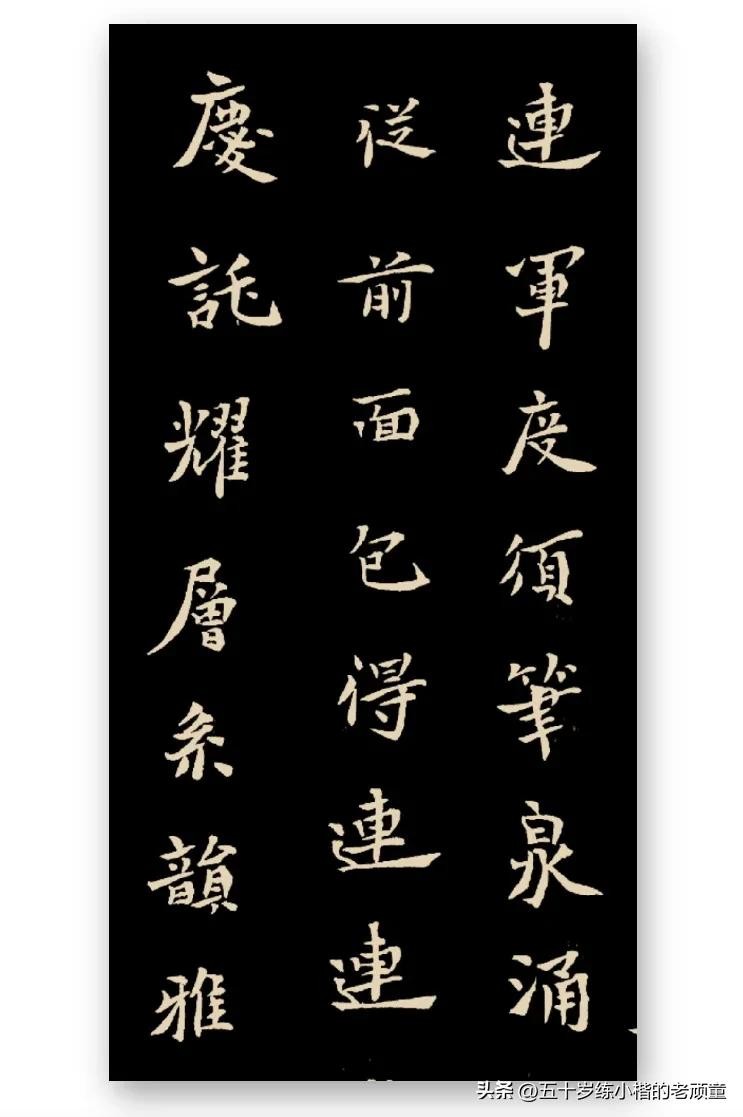 連軍度須筆泉涌
從前面包得連連
慶託耀層系韻雅
头条 @五十岁练小楷的老顽童